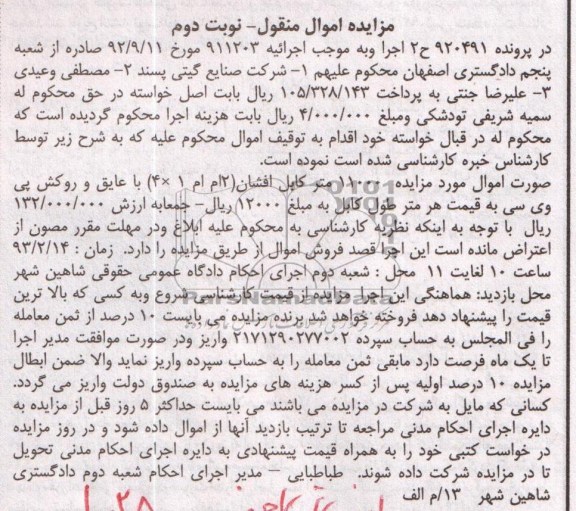 مزایده اموال منقول- نوبت دوم
در پرونده ۹۲۰۴۹۱ ح۲ اجرا وبه موجب اجرائیه ۹۱۱۲۰۳ مورخ ۹۲/۹/۱۱ صادره از شعبه
پنجم دادگستری اصفهان محکوم علیهم ۱- شرکت صنایع گیتی پسند ۲- مصطفی وعیدی
۳- علیرضا جنتی به پرداخت ۱۰۵/۳۲۸/۱۴۳ ریال بابت اصل خواسته در حق محکوم له
سمیه شریفی تودشکی ومبلغ ۴/۰۰۰/۰۰۰ ریال بابت هزینه اجرا محکوم گردیده است که
محکوم له در قبال خواسته خود اقدام به توقیف اموال محکوم علیه که به شرح زیر توسط
کارشناس خبره کارشناسی شده است نموده است.
صورت اموال مورد مزایده متر کابل افشان(۲ام ام ۱ ×۴) با عایق و روکش پی
وی سی به قیمت هر متر طول کابل به مبلغ ۱۲۰۰۰ ریال- جمعابه ارزش ۱۳۲/۰۰۰/۰۰۰
ریال با توجه به اینکه نظریه کارشناسی به محکوم علیه ابلاغ ودر مهلت مقرر مصون از
اعتراض مانده است این اجرا قصد فروش اموال از طریق مزایده را دارد. زمان : ۹۳/۲/۱۴
ساعت ۱۰ لغایت ۱۱ محل : شعبه دوم اجرای احکام دادگاه عمومی حقوقی شاهین شهر
محل بازدید: هماهنگی این اجرا مزایده از قیمت کارشناسی شروع وبه کسی که بالا ترین
قیمت را پیشنهاد دهد فروخته خواهد شد برنده مزایده می بایست ۱۰ درصد از ثمن معامله
را فی المجلس به حساب سپرده ۲۱۷۱۲۹۰۲۷۷۰۰۲ واریز ودر صورت موافقت مدیر اجرا
تا یک ماه فرصت دارد مابقی ثمن معامله را به حساب سپرده واریز نماید والا ضمن ابطال
مزایده ۱۰ درصد اولیه پس از کسر هزینه های مزایده به صندوق دولت واریز می گردد.
کسانی که مایل به شرکت در مزایده می باشند می بایست حداکثر ۵ روز قبل از مزایده به
دایره اجرای احکام مدنی مراجعه تا ترتیب بازدید آنها از اموال داده شود و در روز مزایده
در خواست کتبی خود را به همراه قیمت پیشنهادی به دایره اجرای احکام مدنی تحویل
تا در مزایده شرکت داده شوند. طباطبایی – مدیر اجرای احکام شعبه دوم دادگستری
شاهین شهر ۱۳/م الف